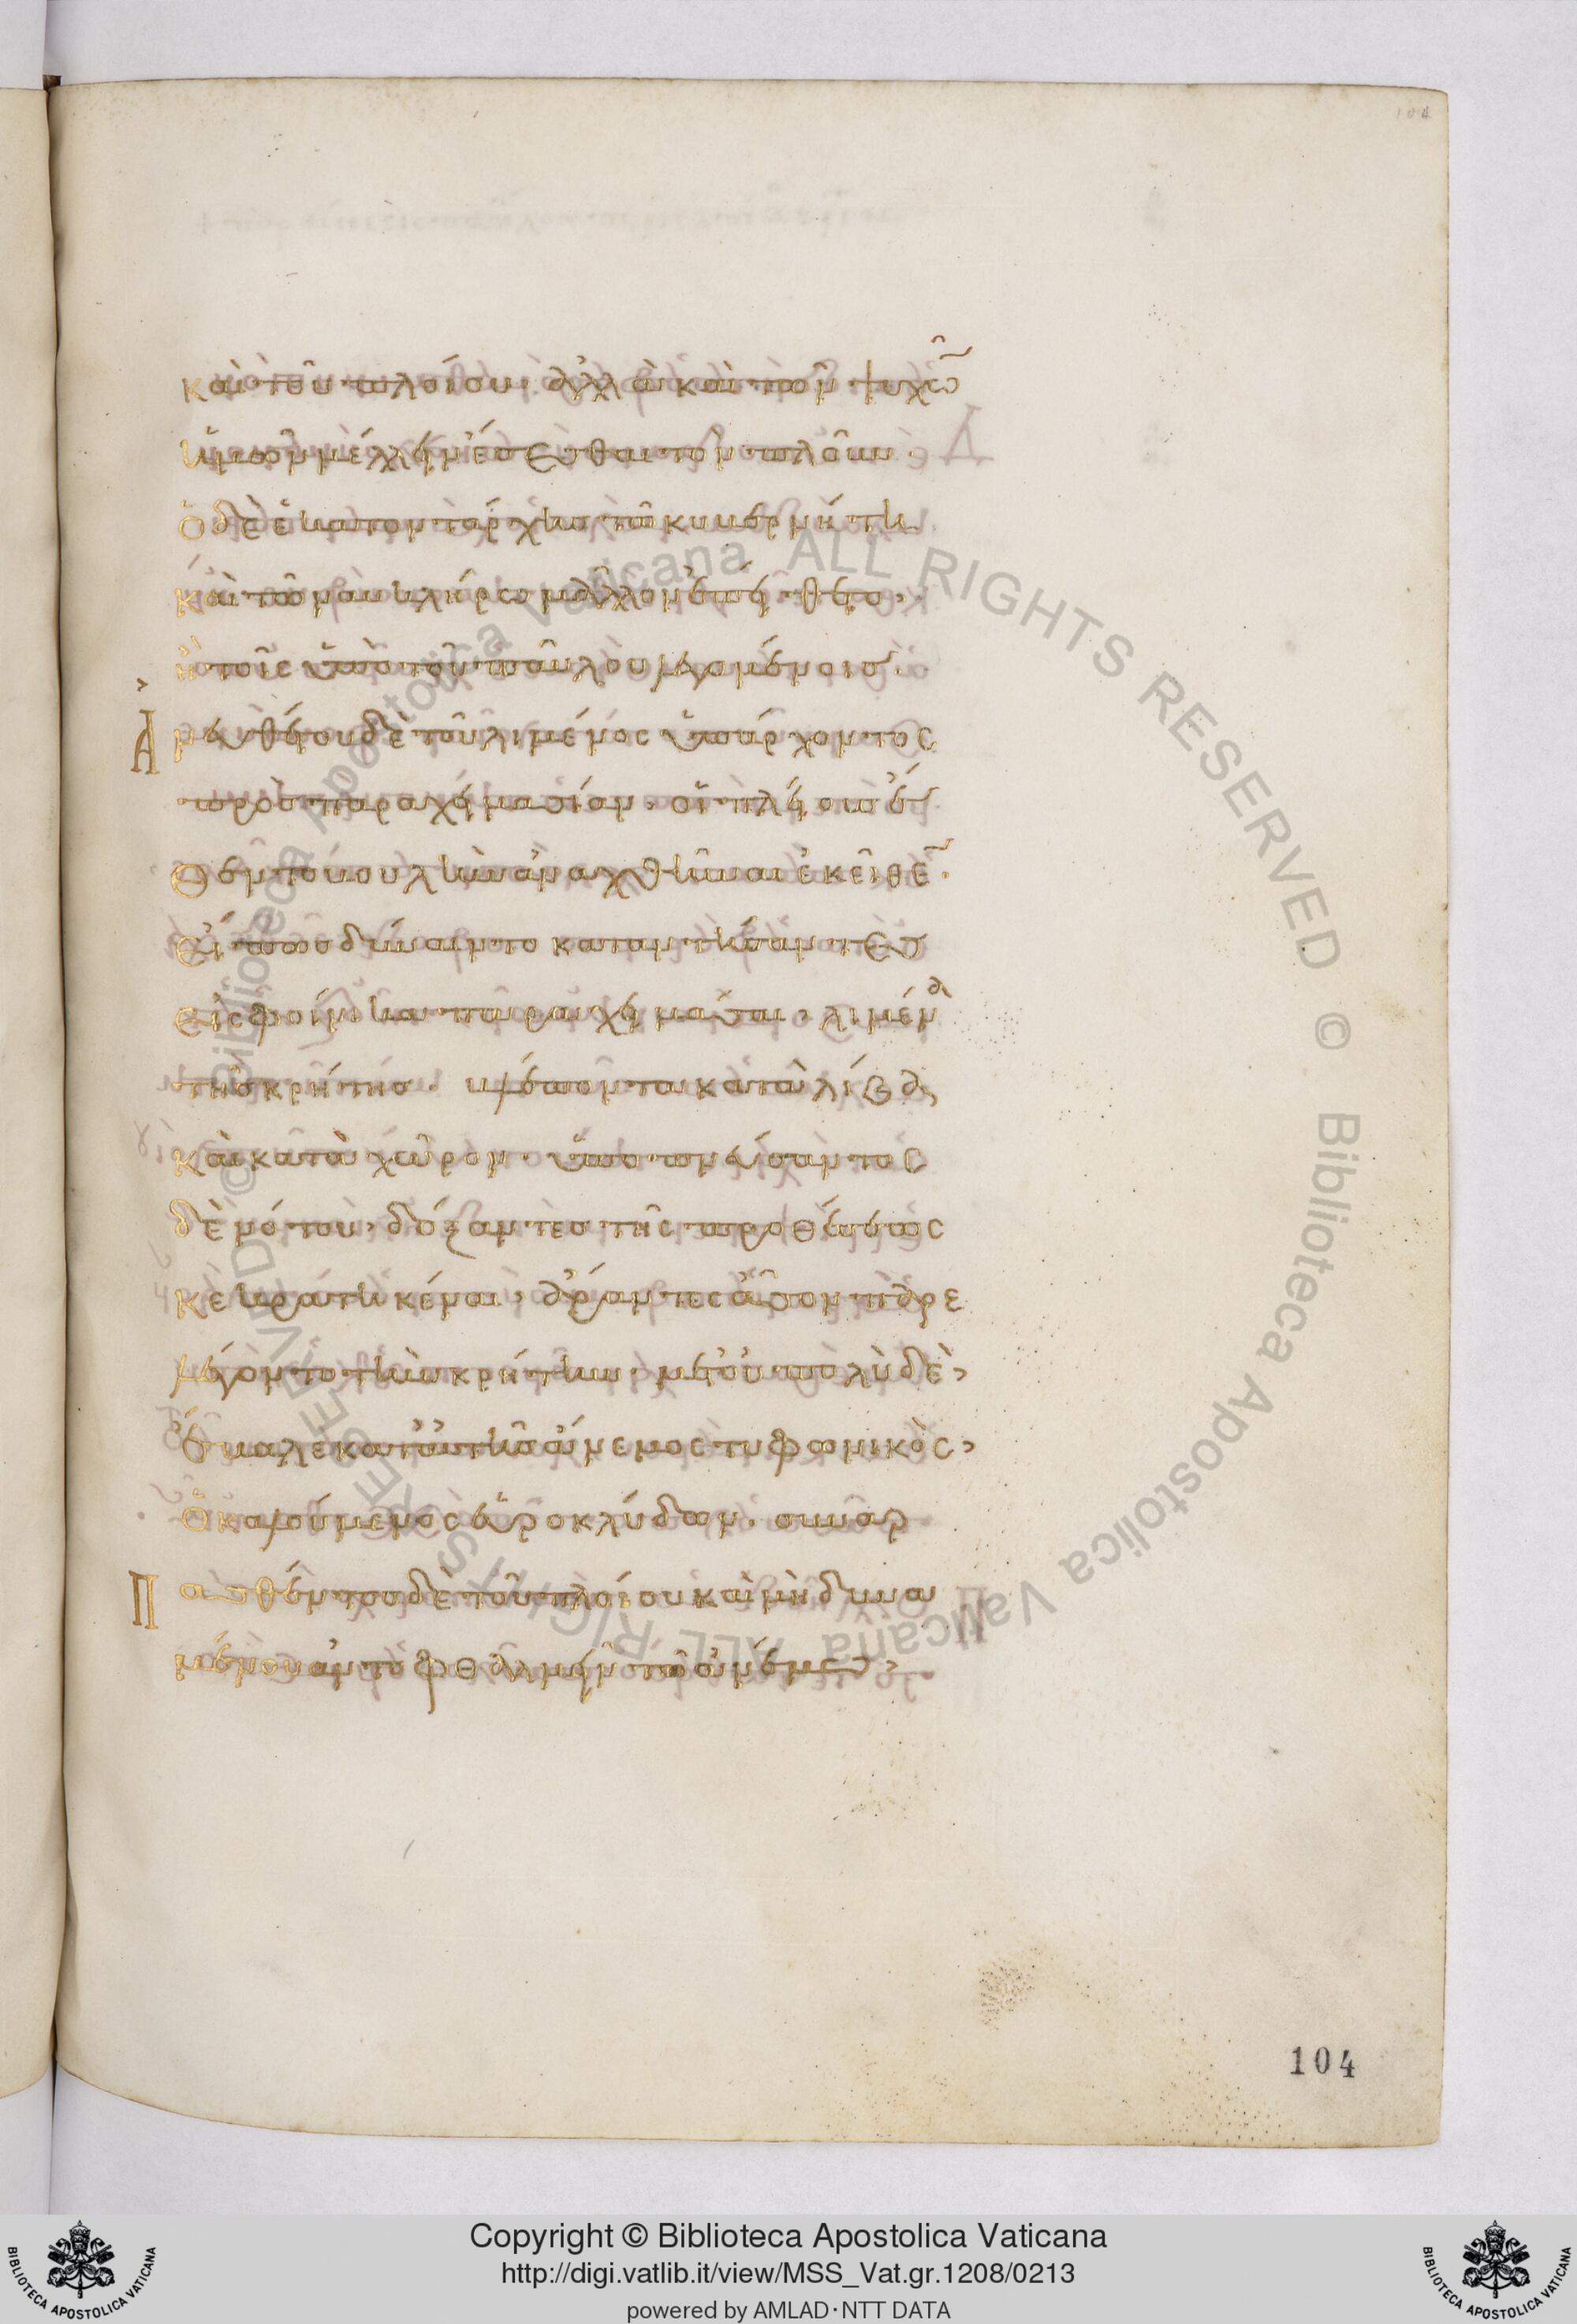 καὶ τοῦ πλοίου. ἀλλὰ καὶ τῶν ψυχῶ̅
ὑμῶν μέλλειν ἔσεσθαι τὸν πλοῦν·
ὁ δὲ ἑκατοντάρχης τῶ κυβερνήτη
καὶ τῶ ναυκλήρω μᾶλλον ἐπείθετο,
ἢ τοῖς ὑπὸ τοῦ παύλου λεγομένοις.
Ἀνευθέτου δὲ τοῦ λιμένος ὑπάρχοντος
πρὸς παραχειμασίαν. οἱ πλείους
ἔθεντο βουλὴν ἀναχθῆναι ἐκεῖθε̅.
εἴ πως δύναιντο καταντήσαντες
εἰς φοίνικα παραχειμάσαι. λιμένα
τῆς κρήτης. βλέποντα κατὰ λίβα
καὶ κατὰ χῶρον. ὑποπνεύσαντος
δὲ νότου, δόξαντες τῆς προθέσεως
κεκρατηκέναι, ἄραντες ἆσσον παρε
λέγοντο τὴν κρήτην. μετ' οὐ πολὺ δὲ,
ἔβαλε κατ' αὐτῆς ἄνεμος τυφωνικὸς,
ὁ καλούμενος εὐροκλύδων. συναρ
Πασθέντος δὲ τοῦ πλοίου καὶ μὴ δυνα
μένου ἀντοφθαλμεῖν τῶ ἀνέμω,
104
104
© Biblioteca Apostolica Vaticana ALL RIGHTS RESERVED © Biblioteca Apostolica Vaticana ALL RIGHTS RESERVED
Copyright © Biblioteca Apostolica Vaticana
http://digi.vatlib.it/view/MSS_Vat.gr.1208/0213
powered by AMLAD·NTT DATA
BIBLIOTECA APOSTOLICA VATICANA
BIBLIOTECA APOSTOLICA VATICANA